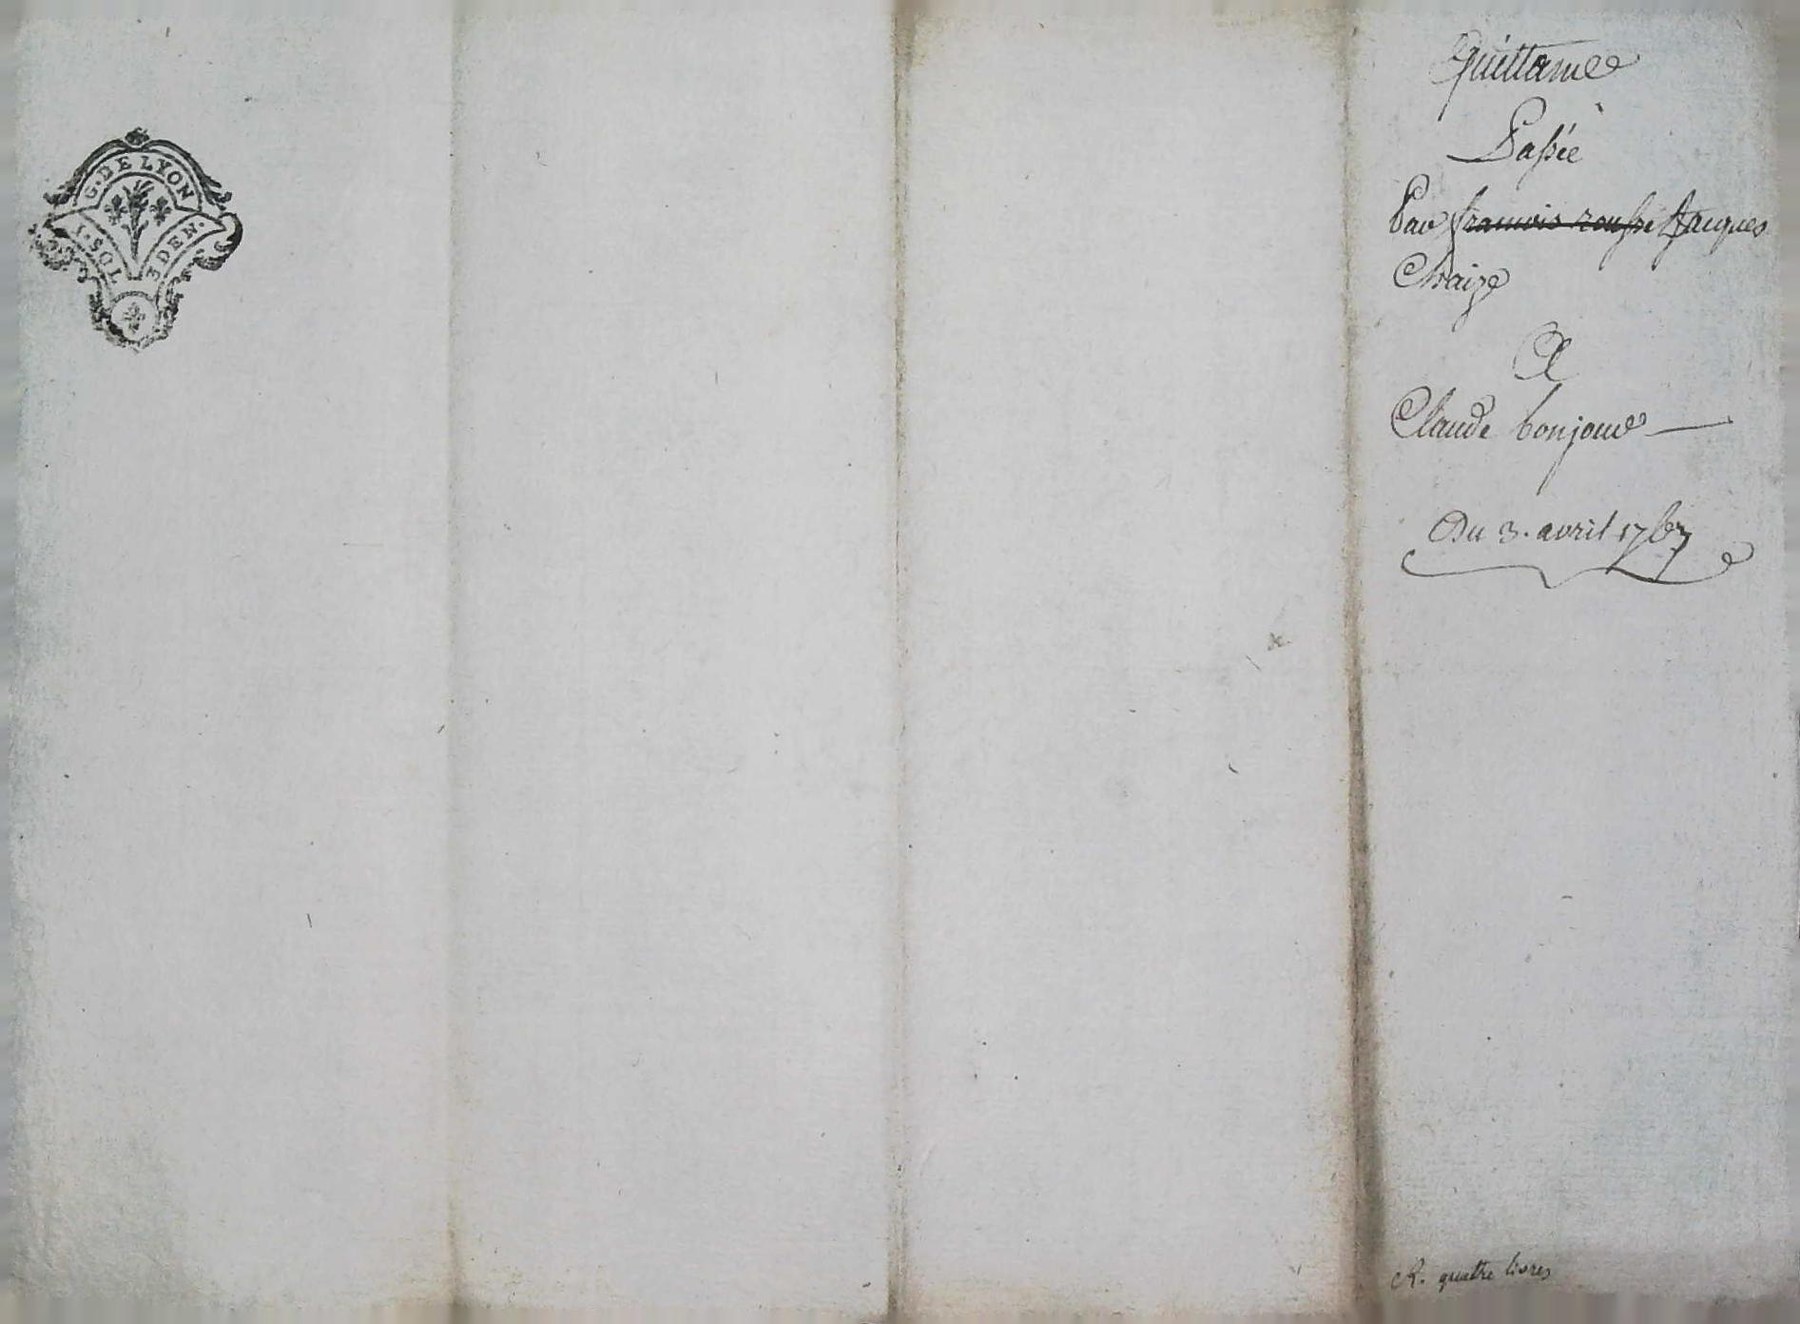 G. DE LYON
1. SOL
3 DEN.
Quittance
Passée
Par françois rousset Jacques
Chaize
A
Claude bonjour
Du 3. avril 1767
R. quatre livres